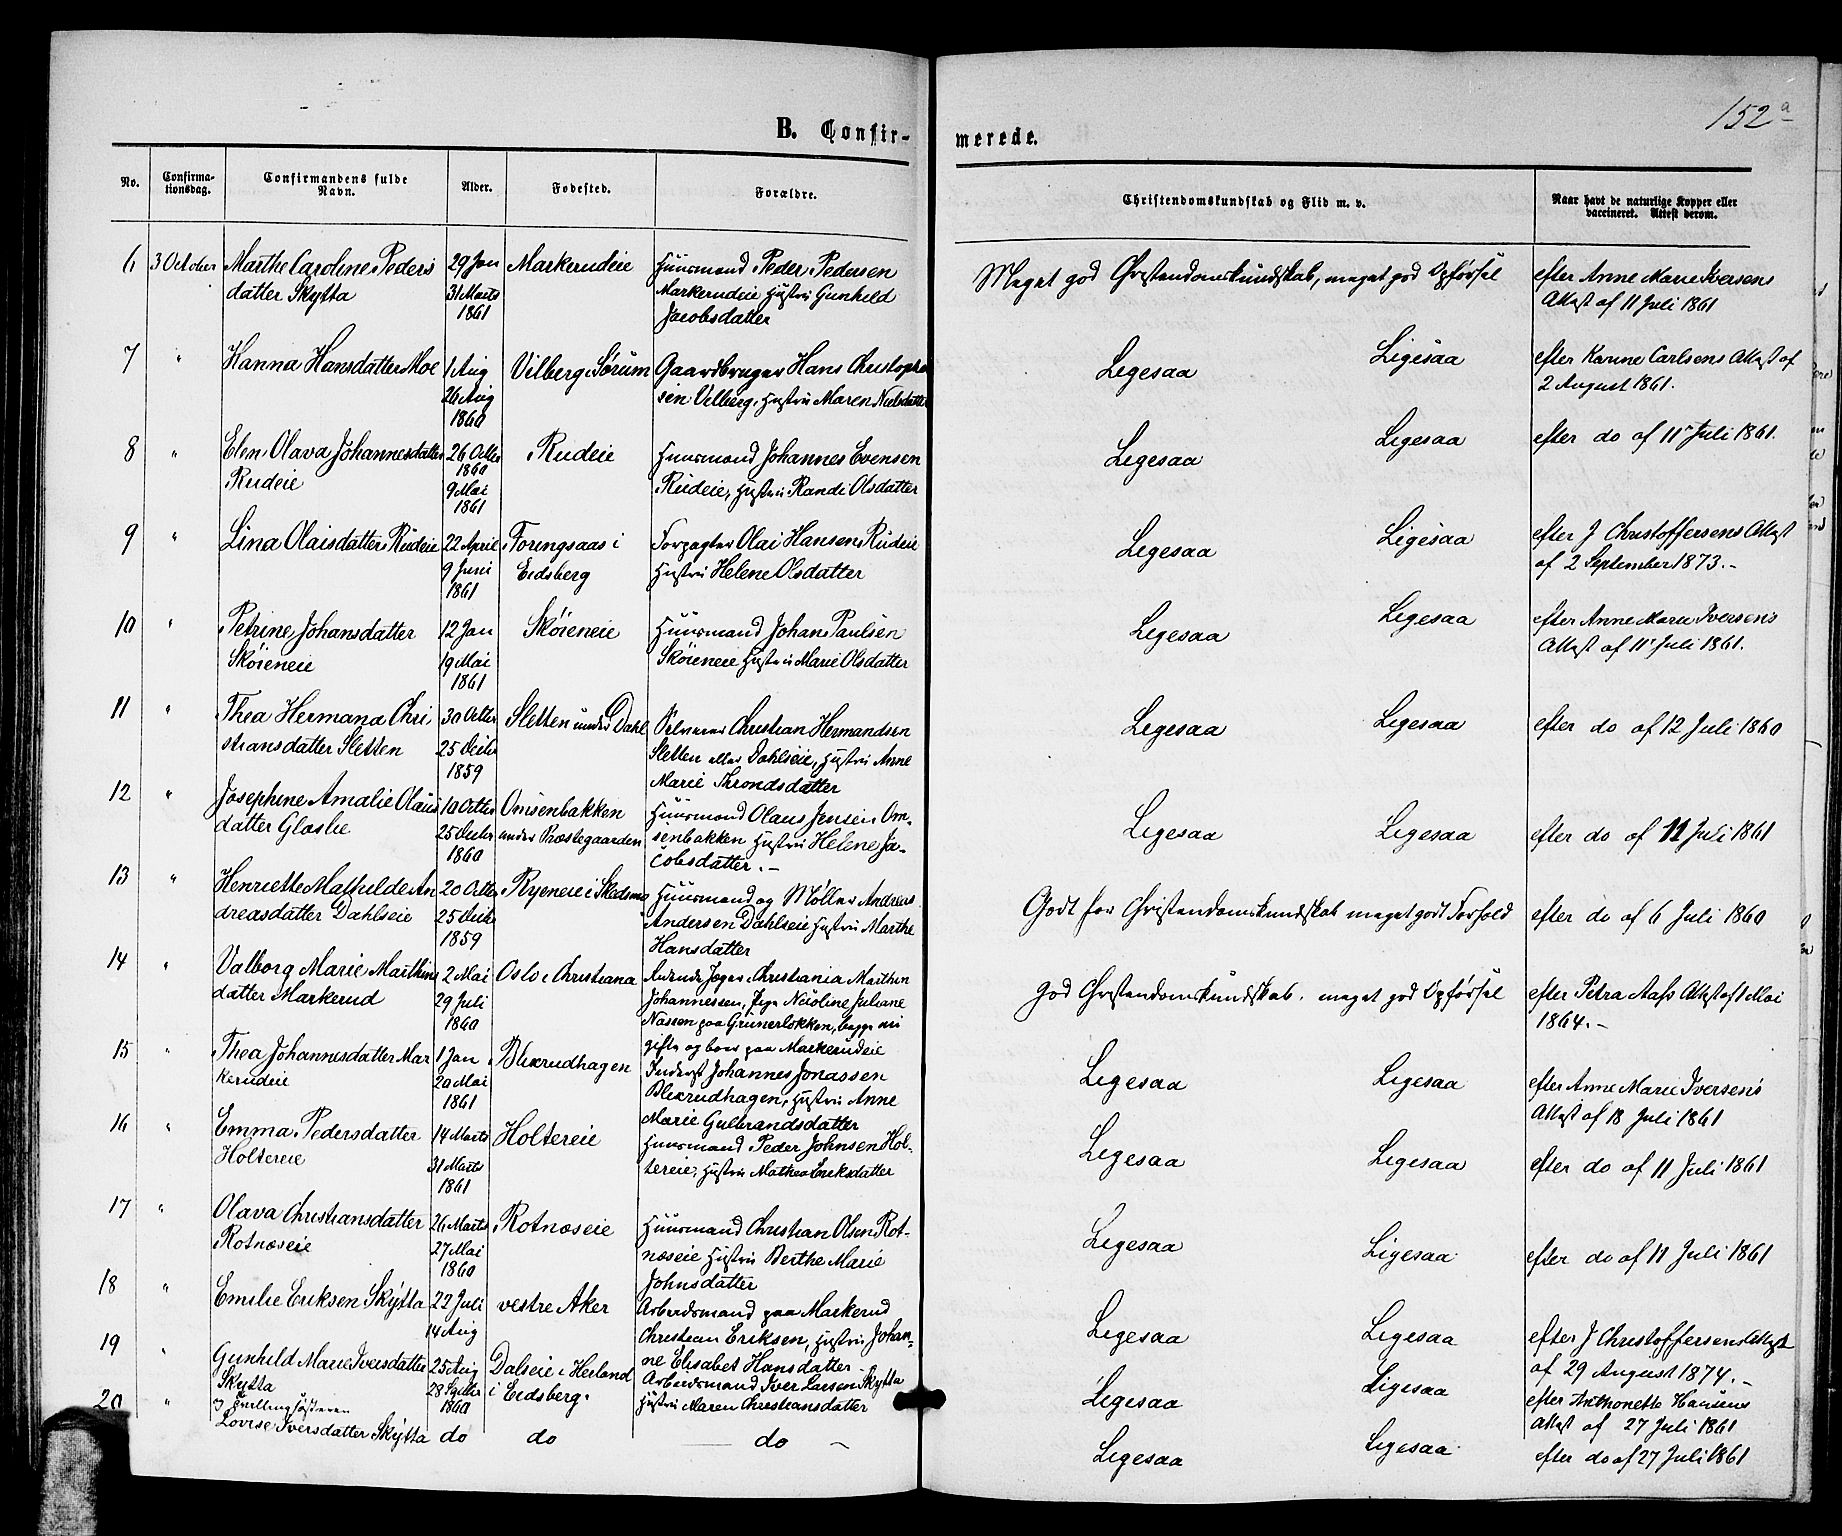 152 a
B. Confir-
merede.
No.
Confirma-
tionsdag.
Confirmandens fulde
Navn.
Alder.
Fødested.
Forældre.
Christendomskundskab og Flid m. v.
Naar havt de naturlige Kopper eller
vaccineret. Attest derom.
6 3 October Marthe Caroline Peders 29 Jan Markerudeie Huusmand Peder Pedersen Meget god Christendomskundskab, meget god Opførsel efter Anne Marie Iversens
datter Skytta 31 Marts Markerudeie Hustru Gunhild Attest af 11 Juli 1861
1861 Jacobsdatter
7 " Hanna Hansdatter Moe 1 Aug Vilberg i Sørum Gaardbruger Hans Christophe Ligesaa Ligesaa efter Karine Carlsens Attest af
26 Aug sen Vilberg, Hustru Maren Nielsdatter 2 August 1861.
1860
8 " Elen Olava Johannesdatter 26 Octbr Rudeie Huusmand Johannes Evensen Ligesaa Ligesaa efter do af 11 Juli 1861.
Rudeie 1860 Rudeie, Hustru Randi Olsdatter
9 Mai
1861
9 " Lina Olaisdatter Rudeie 22 April Toringsaas i Forpagter Olai Hansen Rudeie Ligesaa Ligesaa efter J Christoffersens Attest
9 Juni Eidsberg Hustru Helene Olsdatter af 2 September 1873.-
1861
10 " Petrine Johansdatter 12 Jan Skøieneie Huusmand Johan Paulsen Ligesaa Ligesaa efter Anne Marie Iversens
Skøieneie 19 Mai Skøieneie Hustru Marie Olsdatter Attest af 11 Juli 1861.
1861
11 " Thea Hermana Chri 30 Octbr Sletten under Dahl Christian Hermandsen Ligesaa Ligesaa efter do af 12 Juli 1860
stiansdatter Sletten 25 Decbr Sletten eller Dahlseie, Hustru Anne
1859 Marie Throndsdatter
12 " Josephine Amalie Olaus 10 Octbr Omsenbakken Huusmand Olaus Jensen Om- Ligesaa Ligesaa efter do af 11 Juli 1861
datter Glaslie 25 Decbr under Præstegaarden senbakken Hustru Helene Ja-
1860 cobsdatter.-
13 " Henriette Mathilde An 20 Octbr Ryeneie i Skedsmo Huusmand og Møller Andreas Godt for Christendomskundskab meget godt Forhold efter do af 6 Juli 1860
dreasdatter Dahlseie 25 Decbr Andersen Dahlseie Hustru Marthe
1859 Hansdatter
14 " Valborg Marie Marthins 2 Mai Oslo i Christiania Christiania Marthin god Christendomskundskab. meget god Opførsel efter Petra Aass Attest af 1 Mai
datter Markerud 29 Juli Johannessen, Pige Nicoline Juliane 1864.-
1860 Nassen paa Grünerløkken, begge nu
15 " Thea Johannesdatter Mar 1 Jan Blixrudhagen gifte og boer paa Markerudeie
kerudeie 20 Mai Inderst Johannes Jonassen Ligesaa Ligesaa efter Anne Marie Iversens
1861 Blixrudhagen, Hustru Anne Attest af 18 Juli 1861
16 " Emma Pedersdatter 14 Marts Holtereie Marie Gulbrandsdatter
Holtereie 31 Marts Huusmand Peder Johnsen Hol- Ligesaa Ligesaa efter do af 11 Juli 1861
1861 tereie, Hustru Mathea Eriksdatter
17 " Olava Christiansdatter 26 Marts Rotnæseie Huusmand Christian Olsen Rot- Ligesaa Ligesaa efter do af 11 Juli 1861
Rotnæseie 27 Mai næseie Hustru Berthe Marie
1860 Johnsdatter
18 " Emilie Eriksen Skytta 22 Juli vestre Aker Arbeidsmand paa Markerud Ligesaa Ligesaa efter J Christoffersens Attest
14 Aug Christian Eriksen, Hustru Johan- af 29 August 1874.-
19 " Gunhild Marie Iversdatter 25 Aug Dalseie i Herland ne Elisabet Hansdatter
Skytta 28 Septbr i Eidsberg. Arbeidsmand Iver Larsen Skytta Ligesaa Ligesaa efter Anthonette Hansens
1860 Hustru Maren Christiansdatter Attest af 27 Juli 1861
20 " Tvillingsøsteren
Lovise Iversdatter Skytta do do do Ligesaa Ligesaa efter do af 27 Juli 1861